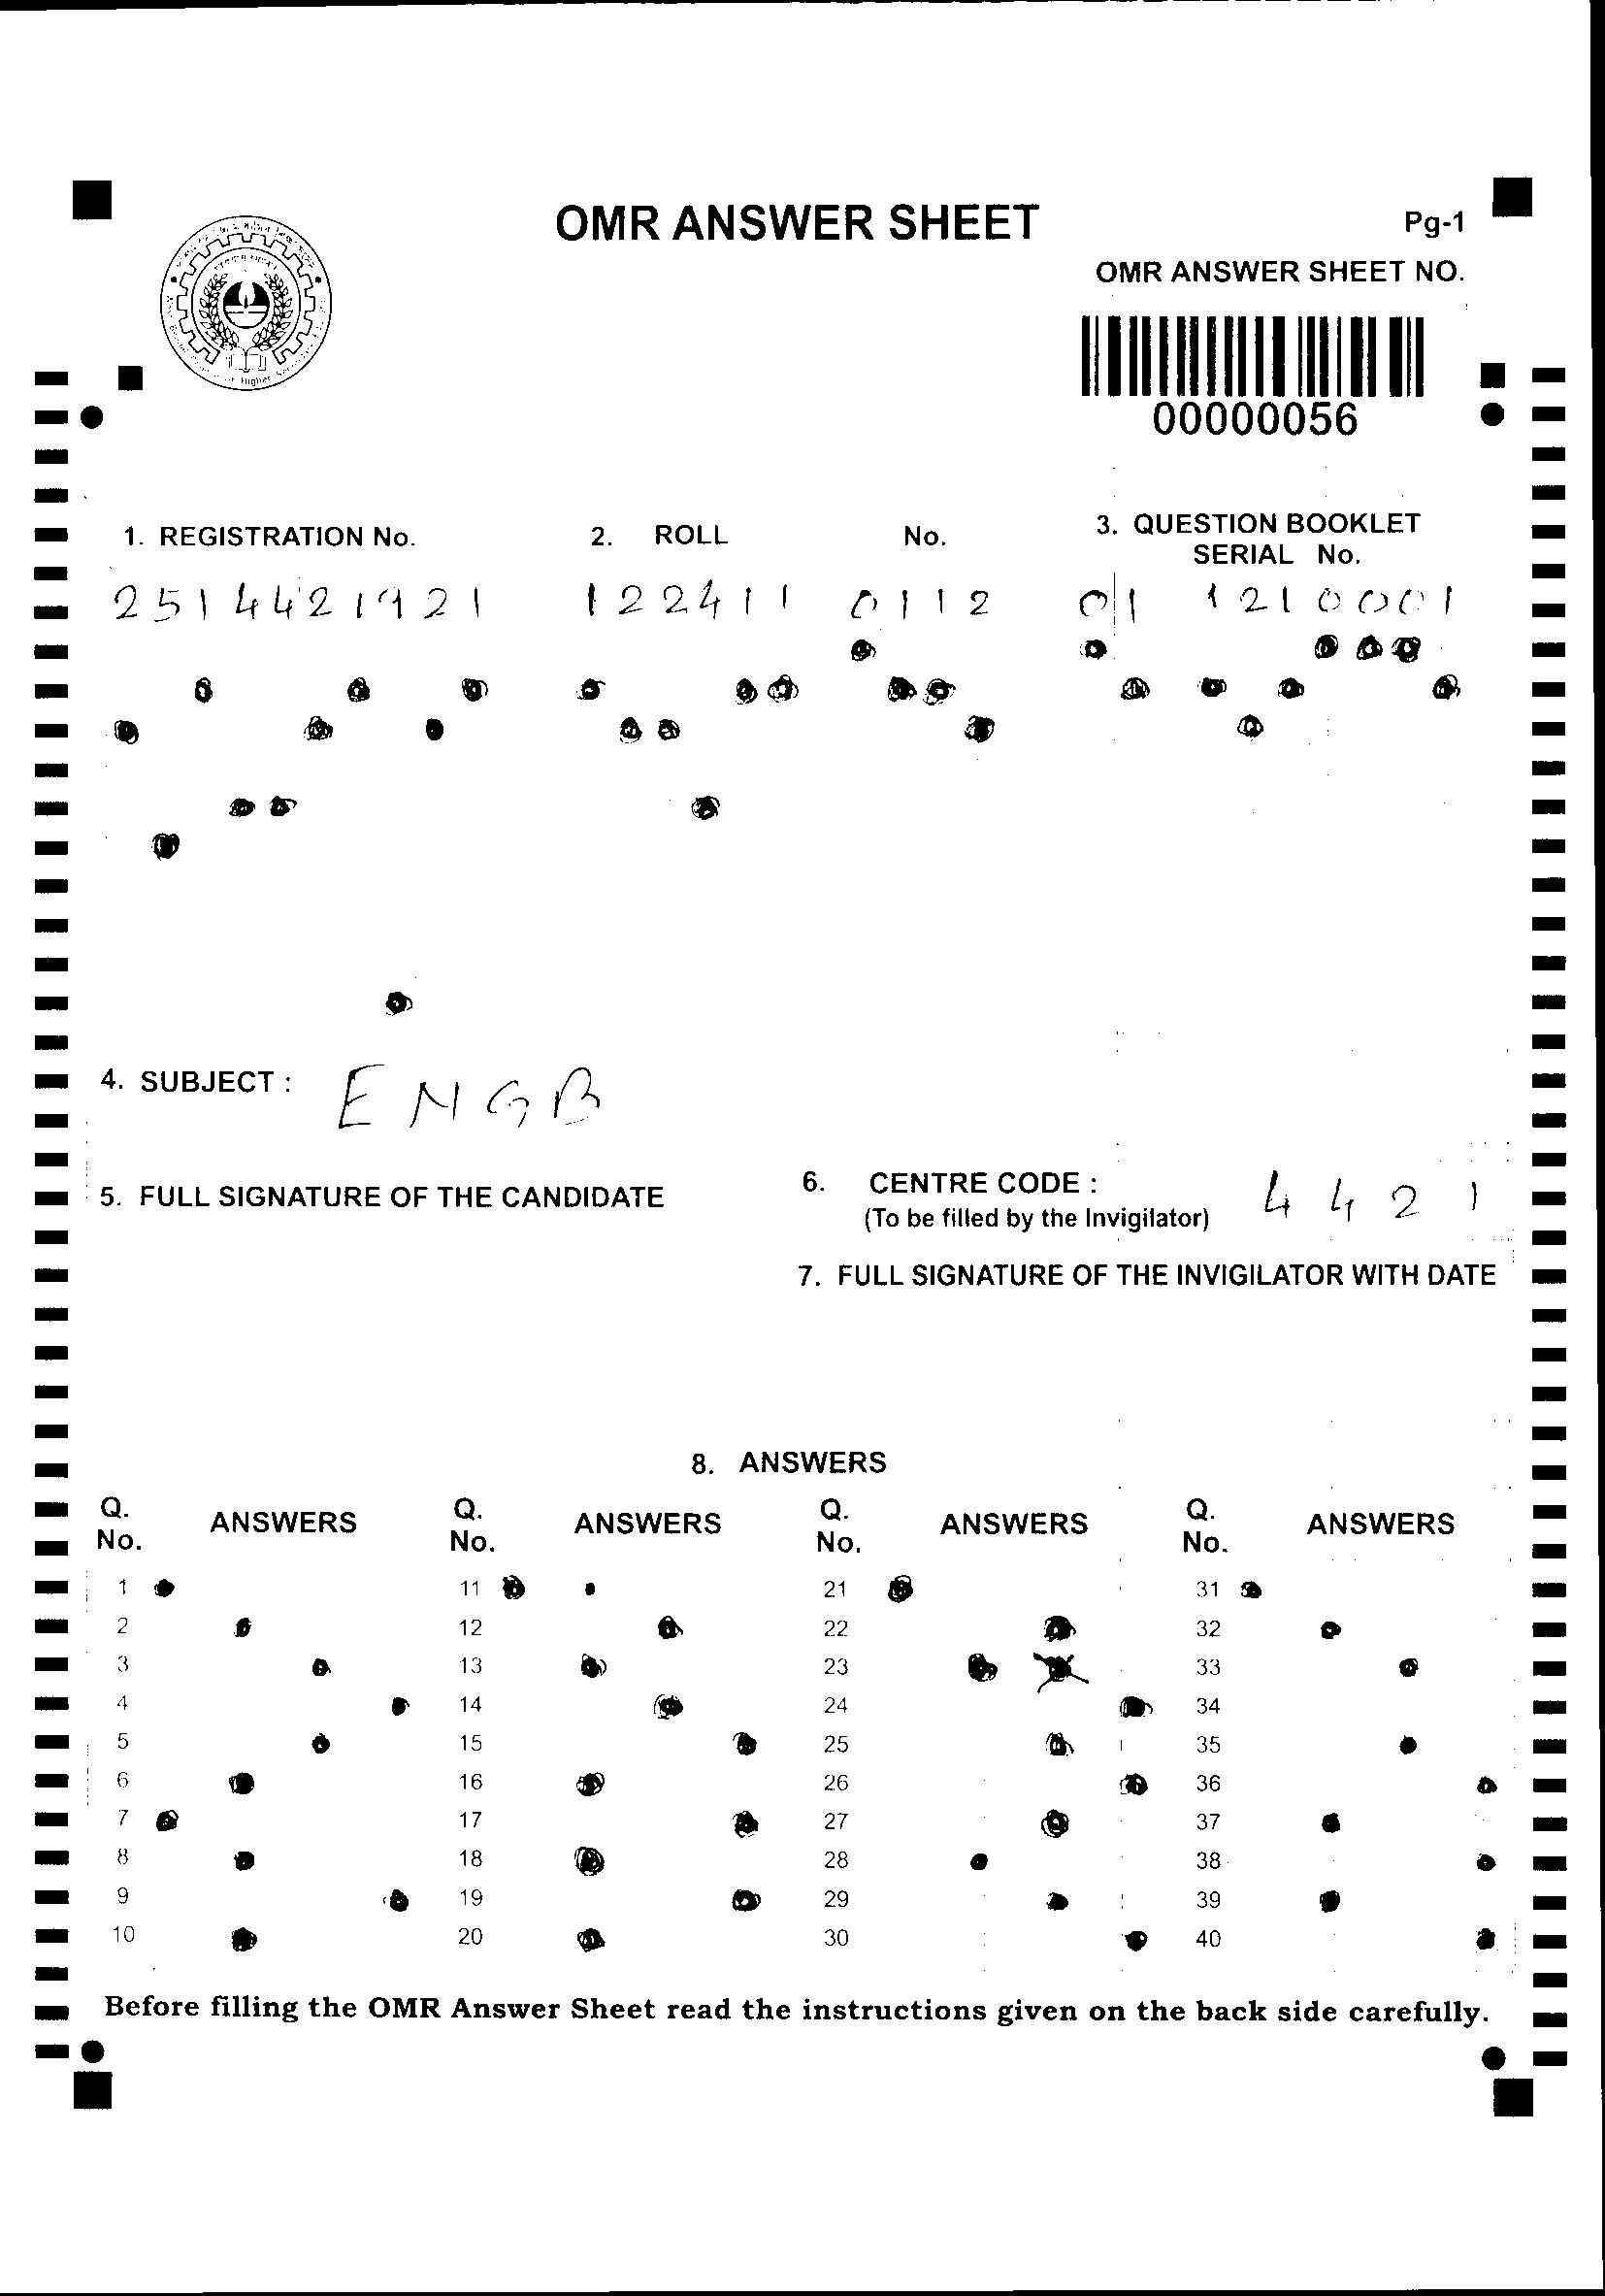 OMR ANSWER SHEET
Pg-1
OMR ANSWER SHEET NO.
00000056
1. REGISTRATION No. 2. ROLL No. 3. QUESTION BOOKLET
SERIAL No.
2514421921 122411 0112 01 1210001
4. SUBJECT : ENGB
5. FULL SIGNATURE OF THE CANDIDATE
6. CENTRE CODE : 4421
(To be filled by the Invigilator)
7. FULL SIGNATURE OF THE INVIGILATOR WITH DATE
8. ANSWERS
Q. No. ANSWERS Q. No. ANSWERS Q. No. ANSWERS Q. No. ANSWERS
1 11 21 31
2 12 22 32
3 13 23 33
4 14 24 34
5 15 25 35
6 16 26 36
7 17 27 37
8 18 28 38
9 19 29 39
10 20 30 40
Before filling the OMR Answer Sheet read the instructions given on the back side carefully.